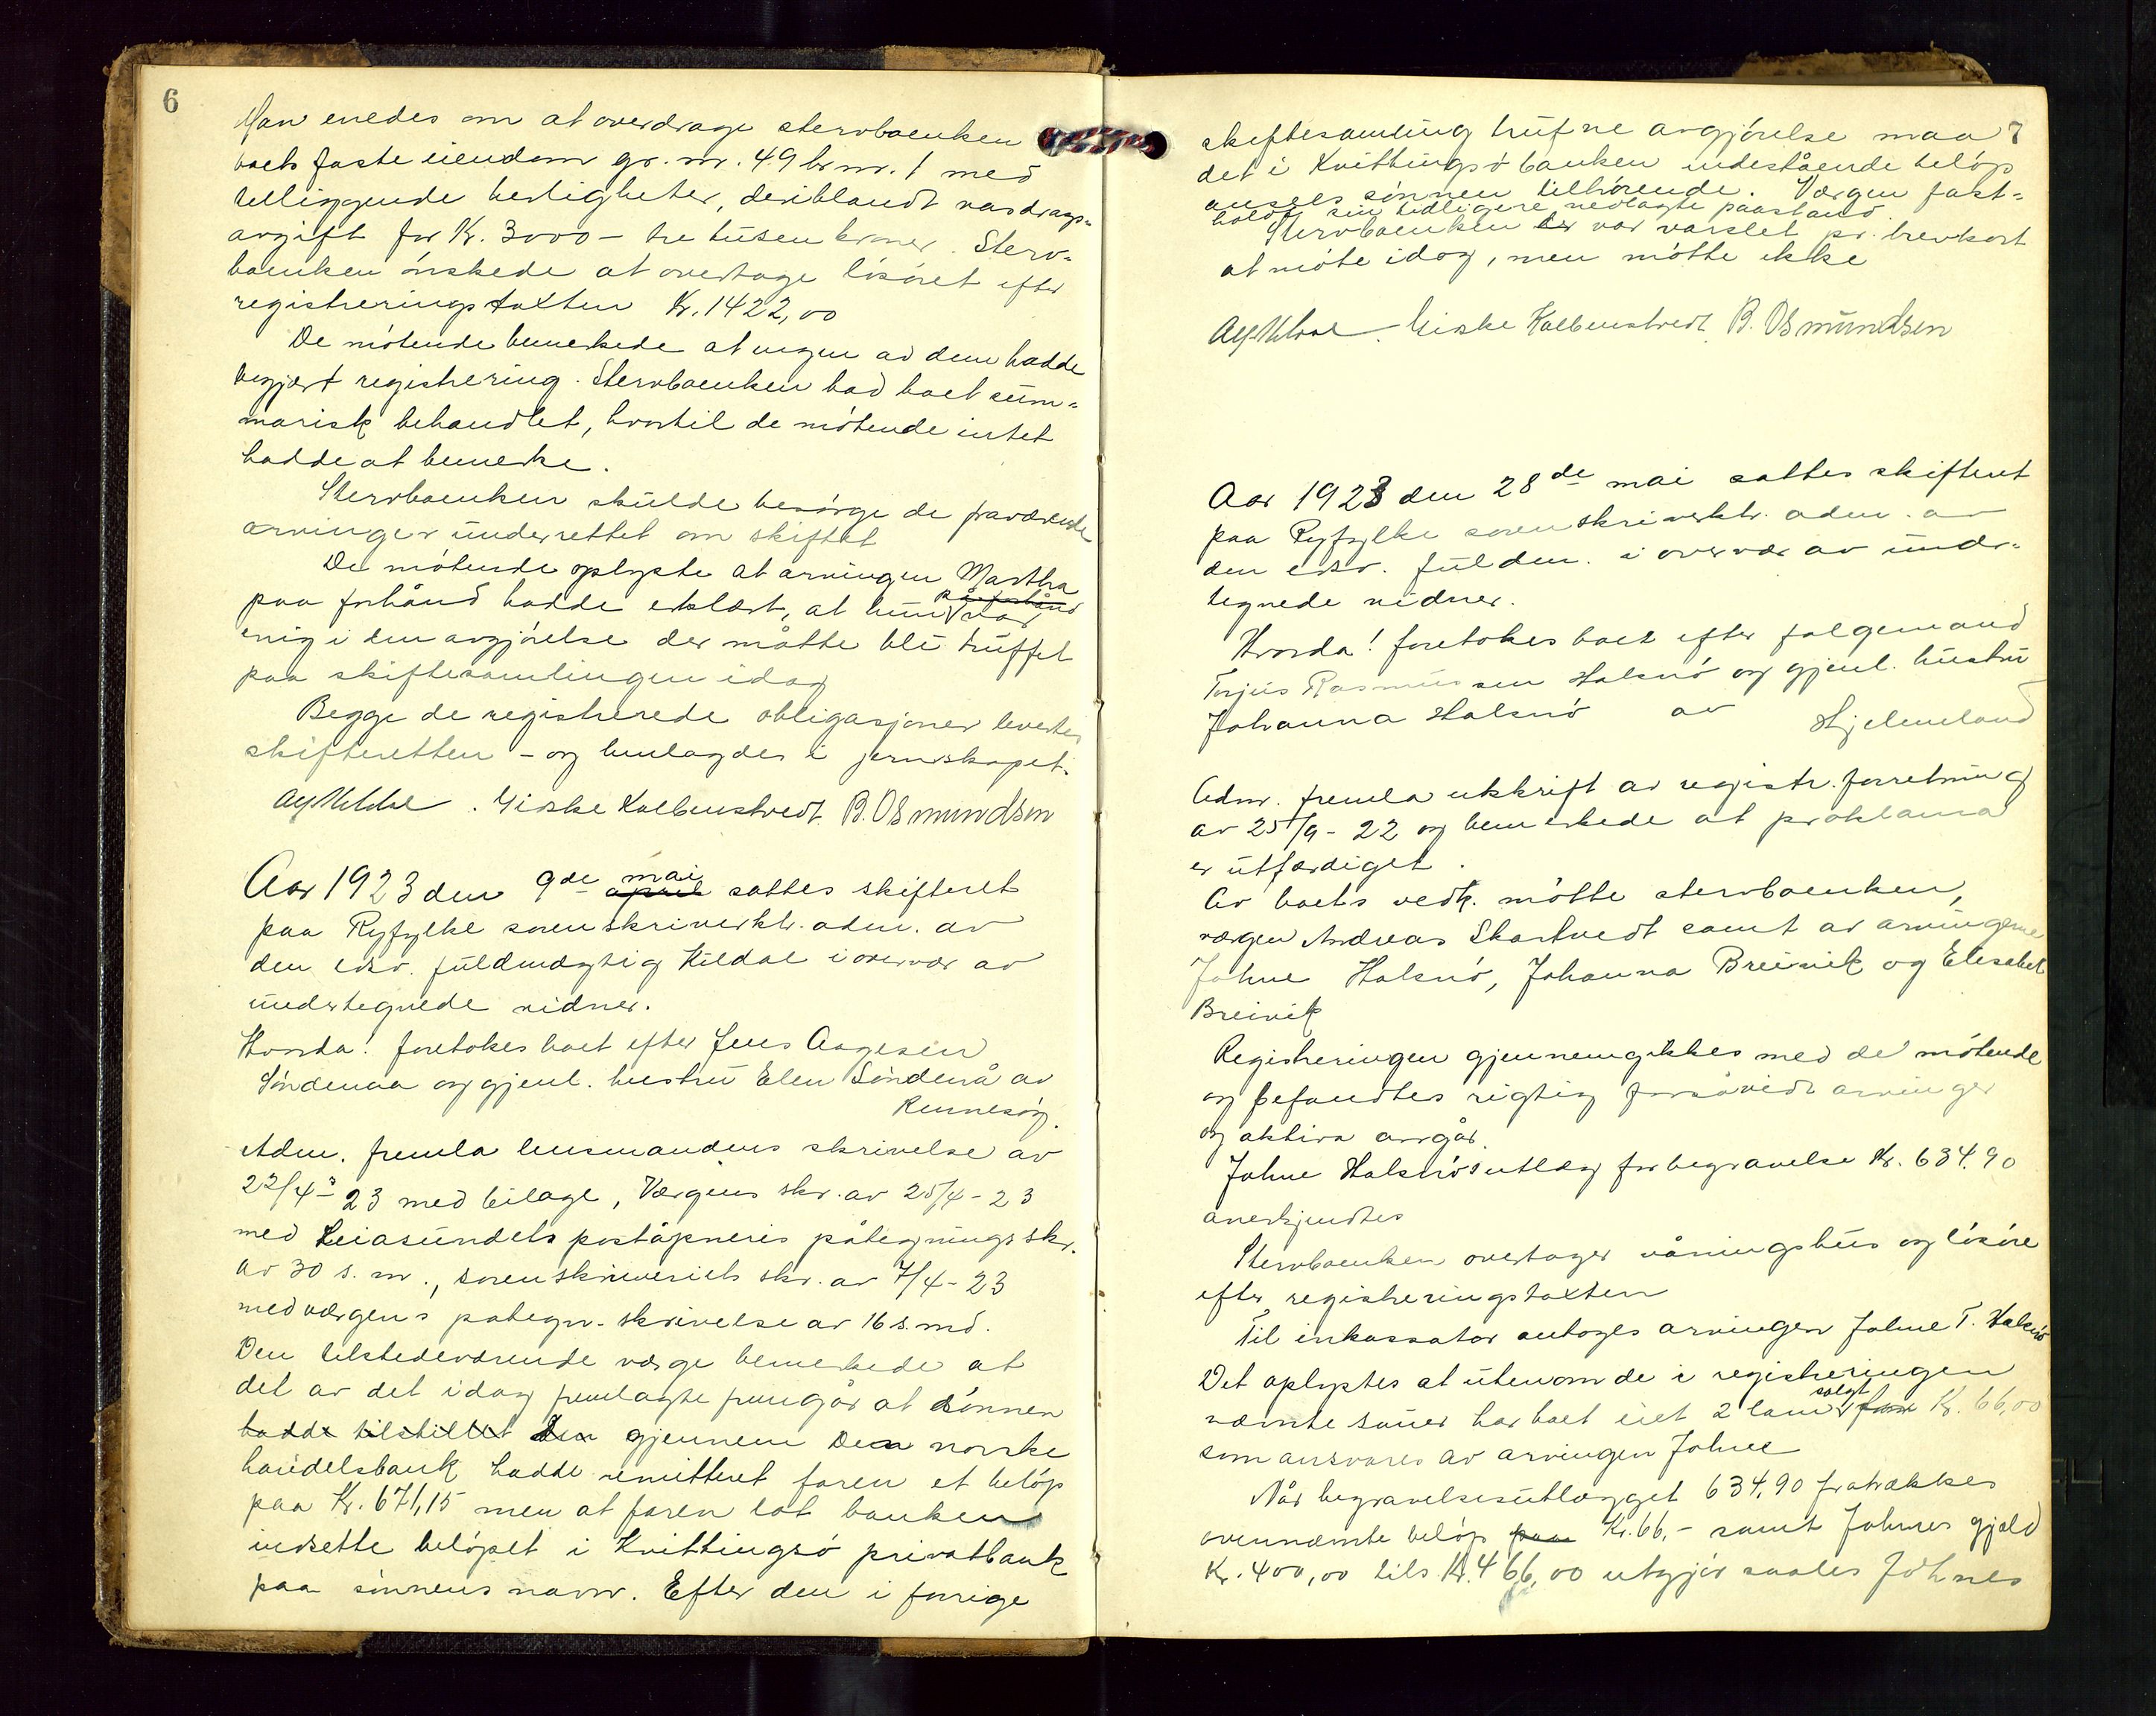 6
Man enedes om at overdrage stervboenken
boets faste eiendom gr. nr. 49 br. nr. 1 med
tilliggende herligheter, deriblandt vasdrags-
avgift for Kr. 3000 - tre tusen kroner. Sterv-
boenken ønskede at overtage løsøret efter
registreringstaxten Kr. 1422,00
De møtende bemerkede at ingen av dem hadde
begjært registrering. Stervboenken bad boet sum-
marisk behandlet, hvortil de møtende intet
hadde at bemerke.
Stervboenken skulde besørge de fraværende
arvinger underrettet om skiftet
De møtende oplyste at arvingen Martha
paa forhånd hadde erklært, at hun på forhånd var
enig i den avgjørelse der måtte bli truffet
paa skiftesamlingen idag
Begge de registrerede obligasjoner levertes
skifteretten - og henlagdes i jernskapet.
Giske Kolbenstvedt. B. Osmundsen
Aar 1923 den 9de april mai sattes skifteret
paa Ryfylke sorenskriverktr. adm. av
den edsv. fuldmægtig Kildal i overvær av
undertegnede vidner.
Hvorda! foretokes boet efter Jens Aagesen
Søndenaa og gjenl. hustru Elen Søndenå av
Rennesøy.
Adm. fremla lensmandens skrivelse av
22/4-23 med bilage, Værgens skr. av 25/4-23
med Leiasundets poståpneris påtegningsskr.
av 30 s. m., sorenskriveriets skr. av 7/4-23
med værgens påtegn. skrivelse av 16 s. md.
Den tilstedeværende værge bemerkede at
det av det idag fremlagte fremgår at sønnen
hadde tilstillet den gjennem Den norske
handelsbank hadde remitteret faren et beløp
paa Kr. 671,15 men at faren lot banken
indsette beløpet i Kvittingsø privatbank
paa sønnens navn. Efter den i forrige
7
skiftesamling trufne avgjørelse maa
det i Kvittingsø banken indestående beløp
ansees sønnen tilhørende. Værgen fast-
holdt sin tidligere nedlagte paastand.
Stervboenken er var varslet pr. brevkort
at møte idag, men møtte ikke
Giske Kolbenstvedt. B. Osmundsen
Aar 1923 den 28de mai sattes skifteret
paa Ryfylke sorenskriverktr. adm. av
den edsv. fuldm. i overvær av under-
tegnede vidner.
Hvorda! foretokes boet efter folgemand
Torjus Rasmussen Halsnø og gjenl. hustru
Johanna Halsnø av Hjelmeland
Adm. fremla utskrift av registr. forretning
av 25/9-22 og bemerkede at proklama
er utfærdiget.
Av boets vedk. møtte stervboenken,
værgen Andreas Skartvedt samt av arvingerne
Johne Halsnø, Johanna Breivik og Elisabet
Breivik
Registreringen gjennemgikkes med de møtende
og befandtes rigtig forsåvidt arvinger
og aktiva angår.
Johne Halsnøs utlæg for begravelse Kr. 634,90
anerkjendtes
Stervboenken overtager våningshus og løsøre
efter registreringstaxten
Til inkassator antoges arvingen Johne T. Halsnø
Det oplystes at utenom de i registreringen
nævnte sauer har boet eiet 2 lam solgt for Kr. 66,00
som ansvares av arvingen Johne
Når begravelsesutlægget 634,90 fratrækkes
ovennævnte beløp paa Kr. 66,- samt Johnes gjeld
Kr. 400,00 tils. Kr. 466,00 utgjør saales Johnes